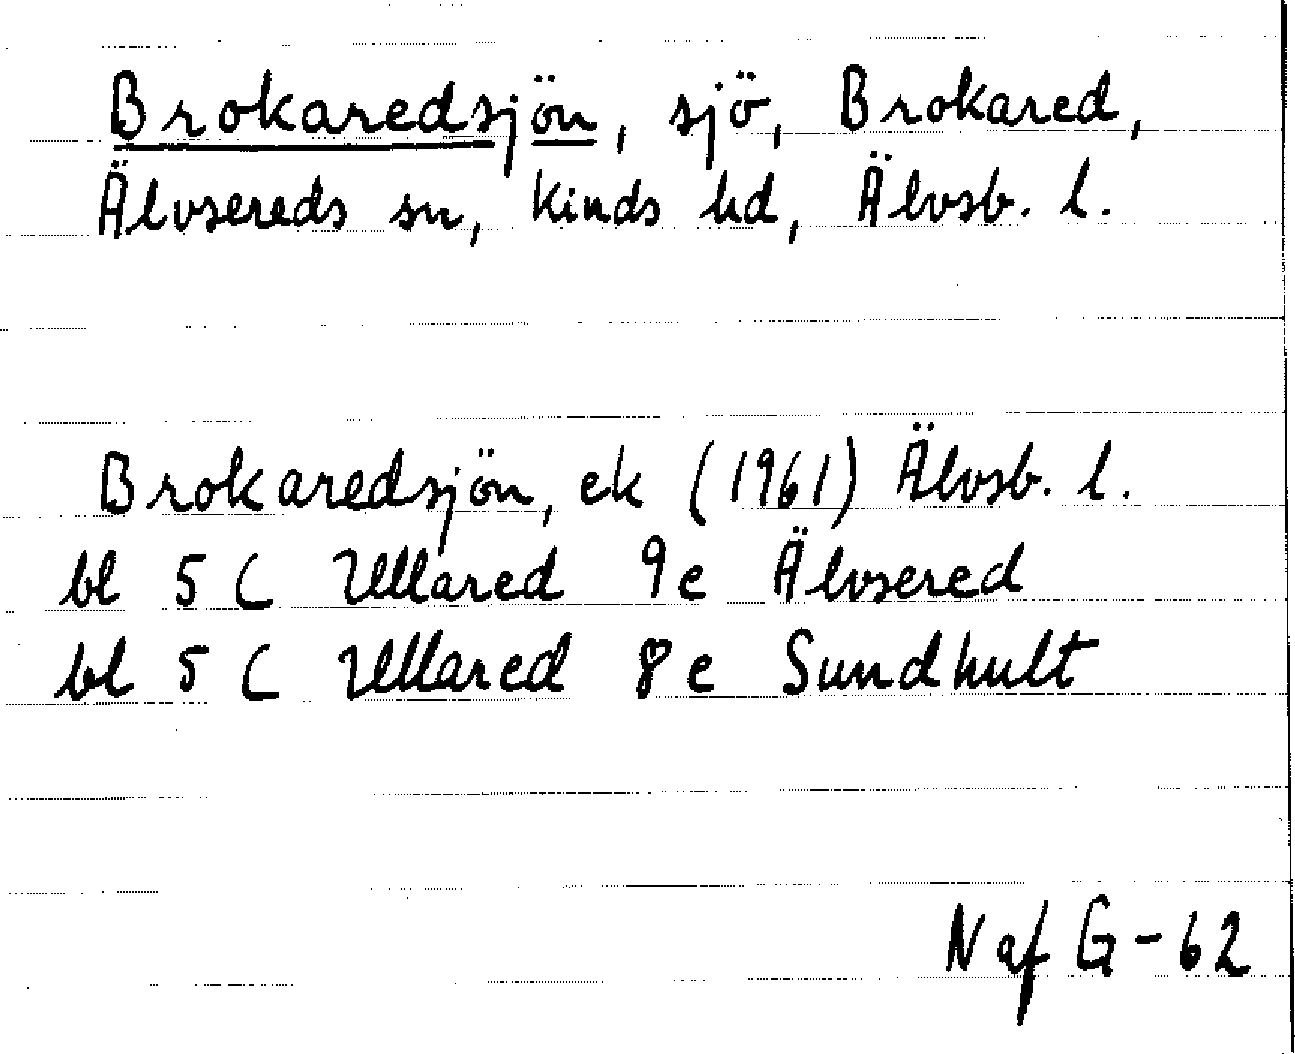 Brokaredsjön, sjö, Brokared,
Älvsereds sn, Kinds hd, Älvsb. l.
Brokaredsjön, ek (1961) Älvsb. l.
bl 5 C Ullared 9e Älvsered
bl 5 C Ullared 8e Sundhult
N af G-62